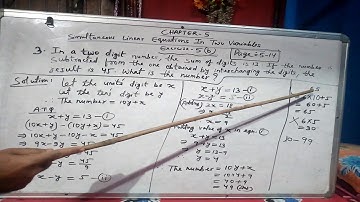 CHAPTER-5
Simultaneous Linear Equations In Two Variables
Exercise-5(b)
Page:-5-14
3. In a two digit number, the sum of digits is 13. If the number
subtracted from the one obtained by interchanging the digits, the
result is 45. What is the number?
Solution: Let the unit's digit be x
Let the ten's digit be y
∴ The number = 10y+x
ATQ
x+y = 13-①
(10x+y)-(10y+x) = 45
⇒ 10x+y-10y-x = 45
⇒ 9x-9y = 45
x-y = 5 -②
x+y = 13-①
2x = 18
y = 13-9
y = 4
The number = 10y+x
= 10×4+9
= 40+9
= 49
65
6×10+5
60+5
= 65
6×5
= 30
10-99